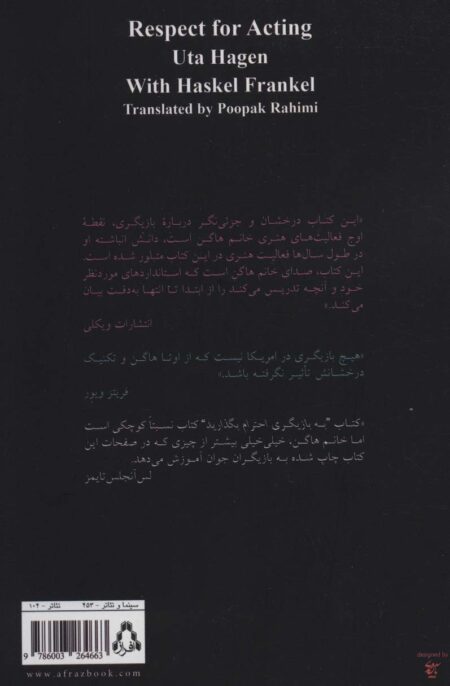 Respect for Acting
Uta Hagen
With Haskel Frankel
Translated by Poopak Rahimi
«این کتاب درخشان و جزئی‌نگر دربارهٔ بازیگری، نقطهٔ
اوج فعالیت‌های هنری خانم هاگن است، دانش انباشته او
در طول سال‌ها فعالیت هنری در این کتاب متبلور شده است.
این کتاب، صدای خانم هاگن است که استانداردهای موردنظر
خود و آنچه تدریس می‌کند را از ابتدا تا انتها به‌دقت بیان
می‌کند.»
انتشارات ویکلی
«هیچ بازیگری در امریکا نیست که از اوتا هاگن و تکنیک
درخشانش تأثیر نگرفته باشد.»
فریتز ویور
«کتاب "به بازیگری احترام بگذارید" کتاب نسبتاً کوچکی است
اما خانم هاگن، خیلی‌خیلی بیشتر از چیزی که در صفحات این
کتاب چاپ شده به بازیگران جوان آموزش می‌دهد.
لس‌آنجلس‌تایمز
سینما و تئاتر - ۲۵۳ تئاتر - ۱۰۴
افراز
9 786003 264663
www.afrazbook.com
designed by